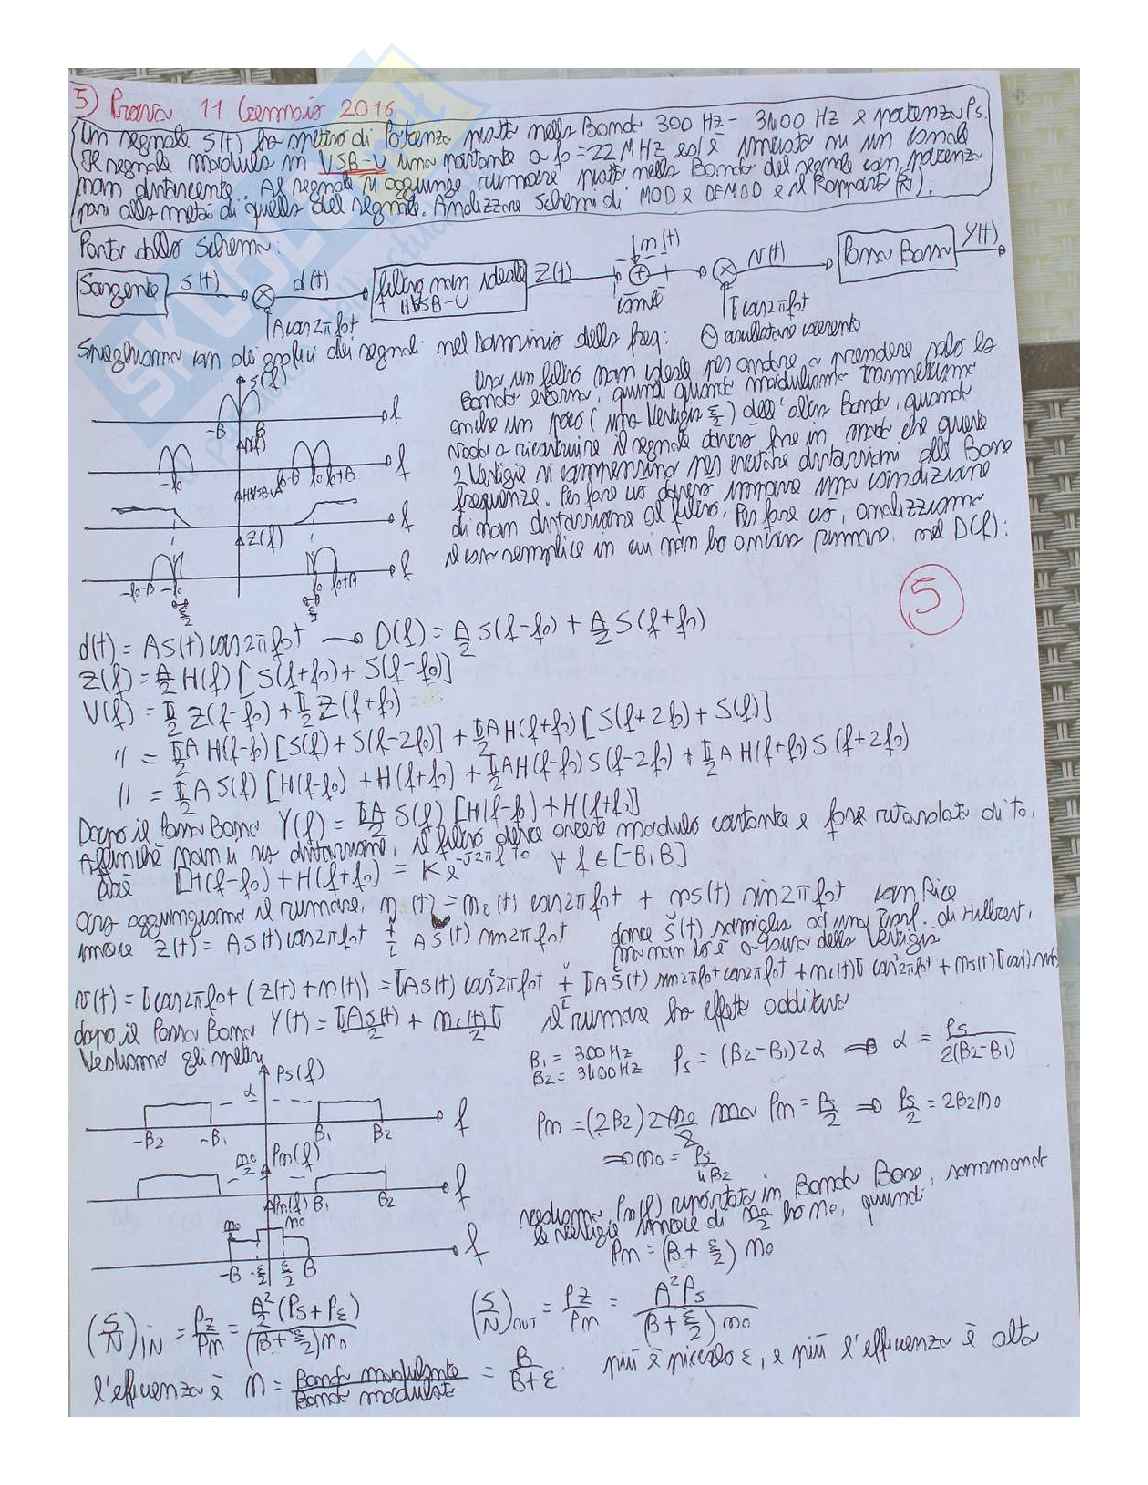 5) Prova 11 Gennaio 2016
Un segnale S(t) ha spettro di Potenza piatto nella Banda 300 Hz - 3400 Hz e potenza Ps.
Il segnale modula in VSB-U una portante a f0 = 22 MHz ed è inviato su un canale
non distorcente. Al segnale si aggiunge rumore piatto nella Banda del segnale con potenza
pari alla metà di quella del segnale. Analizzare schemi di MOD e DEMOD e il Rapporto
Parto dallo schema:
Sorgente S(t) d(t) filtro non ideale Z(t) n(t) V(t) Passa Basso Y(t)
VSB-U canale
A cos2πf0t I cos2πf0t
oscillatore coerente
Spieghiamo con dei grafici dei segnali nel dominio della freq:
Uso un filtro non ideale per andare a prendere solo la
Banda esterna, quindi quando moduliamo trasmettiamo
anche un poco (una Vestigia ε/2) dell'altra Banda, quando
vado a ricostruire il segnale devo fare in modo che queste
2 Vestigie si compensino per evitare distorsioni alle Basse
frequenze. Per fare ciò devo imporre una condizione
di non distorsione al filtro. Per fare ciò, analizziamo
il caso semplice in cui non ho ancora rumore, nel D(f):
S(f)
-B B f
-f0 f0-B f0 f0+B f
f
Z(f)
-f0-B -f0 f0 f0+B f
5
d(t) = AS(t) cos2πf0t → D(f) = A/2 S(f-f0) + A/2 S(f+f0)
Z(f) = A/2 H(f) [S(f+f0) + S(f-f0)]
V(f) = I/2 Z(f-f0) + I/2 Z(f+f0)
" = I/2 A H(f-f0) [S(f) + S(f-2f0)] + I/2 A H(f+f0) [S(f+2f0) + S(f)]
" = I/2 A S(f) [H(f-f0) + H(f+f0)] + I/2 A H(f-f0) S(f-2f0) + I/2 A H(f+f0) S(f+2f0)
Dopo il Passa Basso Y(f) = IA/2 S(f) [H(f-f0) + H(f+f0)]
Affinché non vi sia distorsione, il filtro deve avere modulo costante e fase ritardata di t0,
cioè [H(f-f0) + H(f+f0)] = K e^-j2πft0 ∀ f ∈ [-B, B]
Ora aggiungiamo il rumore, n(t) = nc(t) cos2πf0t + ns(t) sin2πf0t
invece Z(t) = AS(t) cos2πf0t ± A/2 Š(t) sin2πf0t dove Š(t) somiglia ad una Trasf. di Hilbert,
ma non lo è a causa della Vestigia
dopo il Passa Basso Y(t) = IAS(t)/2 + nc(t)I/2 il rumore ha effetto additivo
Vediamo gli spettri
Ps(f)
α
-B2 -B1 B1 B2 f
B1 = 300 Hz
B2 = 3400 Hz
Ps = (B2-B1)2α ⇒ α = Ps/2(B2-B1)
Pn(f)
n0/2
B1 B2 f
Pn = (2B2) 2 n0/2 ma Pn = Ps/2 ⇒ Ps/2 = 2B2n0
⇒ n0 = Ps/4B2
Pn(f)
n0 n0
-B -ε/2 ε/2 B f
vediamo Pn(f) riportata in Banda Base, sommando
le vestigie invece di n0/2 ho n0, quindi
Pn = (B + ε/2) n0
(S/N)IN = Pz/Pn = A²/2 (Ps + Pε) / (B + ε/2) n0
(S/N)OUT = Pz/Pn = A²Ps / (B + ε/2) n0
l'efficenza è η = Banda modulante/Banda modulata = B/B+ε più è piccolo ε, e più l'efficenza è alta